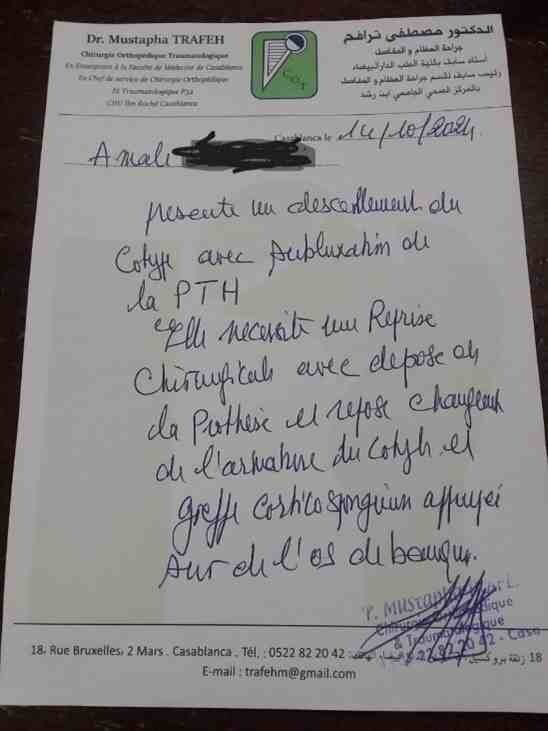 Dr. Mustapha TRAFEH
Chirurgie Orthopédique Traumatologique
Ex Enseignant à la Faculté de Médecine de Casablanca
Ex Chef de service de Chirurgie Orthopédique
Et Traumatologique P32
CHU Ibn Rochd Casablanca
C.O.T
الدكتور مصطفى ترافح
جراحة العظام و المفاصل
أستاذ سابق بكلية الطب الدارالبيضاء
رئيس سابق لقسم جراحة العظام و المفاصل
بالمركز الصحي الجامعي ابن رشد
Casablanca le 14/10/2024.
Amale
présente un descellement du
Cotyle avec subluxation de
la PTH
Elle necessite une Reprise
Chirurgicale avec depose de
la Prothèse et repose changement
de l'armature du Cotyle et
greffe corticospongieux appuyée
sur de l'os de banque.
P. MUSTAPHA
& Traumatologique
18, Rue Bruxelles, 2 Mars . Casablanca . Tél, : 0522 82 20 42
18 زنقة بروكسيل
E-mail : trafehm@gmail.com